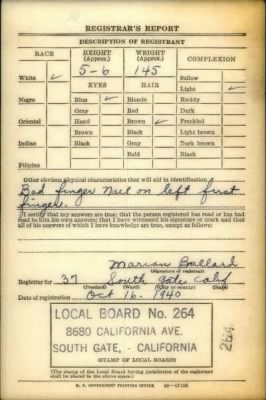 REGISTRAR'S REPORT
DESCRIPTION OF REGISTRANT
RACE HEIGHT (Approx.) WEIGHT (Approx.) COMPLEXION
5-6 145 Sallow
White ✓ EYES HAIR Light ✓
Negro Blue ✓ Blonde Ruddy
Gray Red Dark
Oriental Hazel Brown ✓ Freckled
Brown Black Light brown
Indian Black Gray Dark brown
Bald Black
Filipino
Other obvious physical characteristics that will aid in identification
Bad finger nail on left first
finger.
I certify that my answers are true; that the person registered has read or has had
read to him his own answers; that I have witnessed his signature or mark and that
all of his answers of which I have knowledge are true, except as follows:
Marian Ballard
(Signature of registrar)
Registrar for 37 South Gate Calif
(Precinct) (Ward) (City or county) (State)
Date of registration Oct 16 - 1940
LOCAL BOARD No. 264
8680 CALIFORNIA AVE.
SOUTH GATE, - CALIFORNIA
264
(STAMP OF LOCAL BOARD)
(The stamp of the Local Board having jurisdiction of the registrant
shall be placed in the above space.)
U. S. GOVERNMENT PRINTING OFFICE